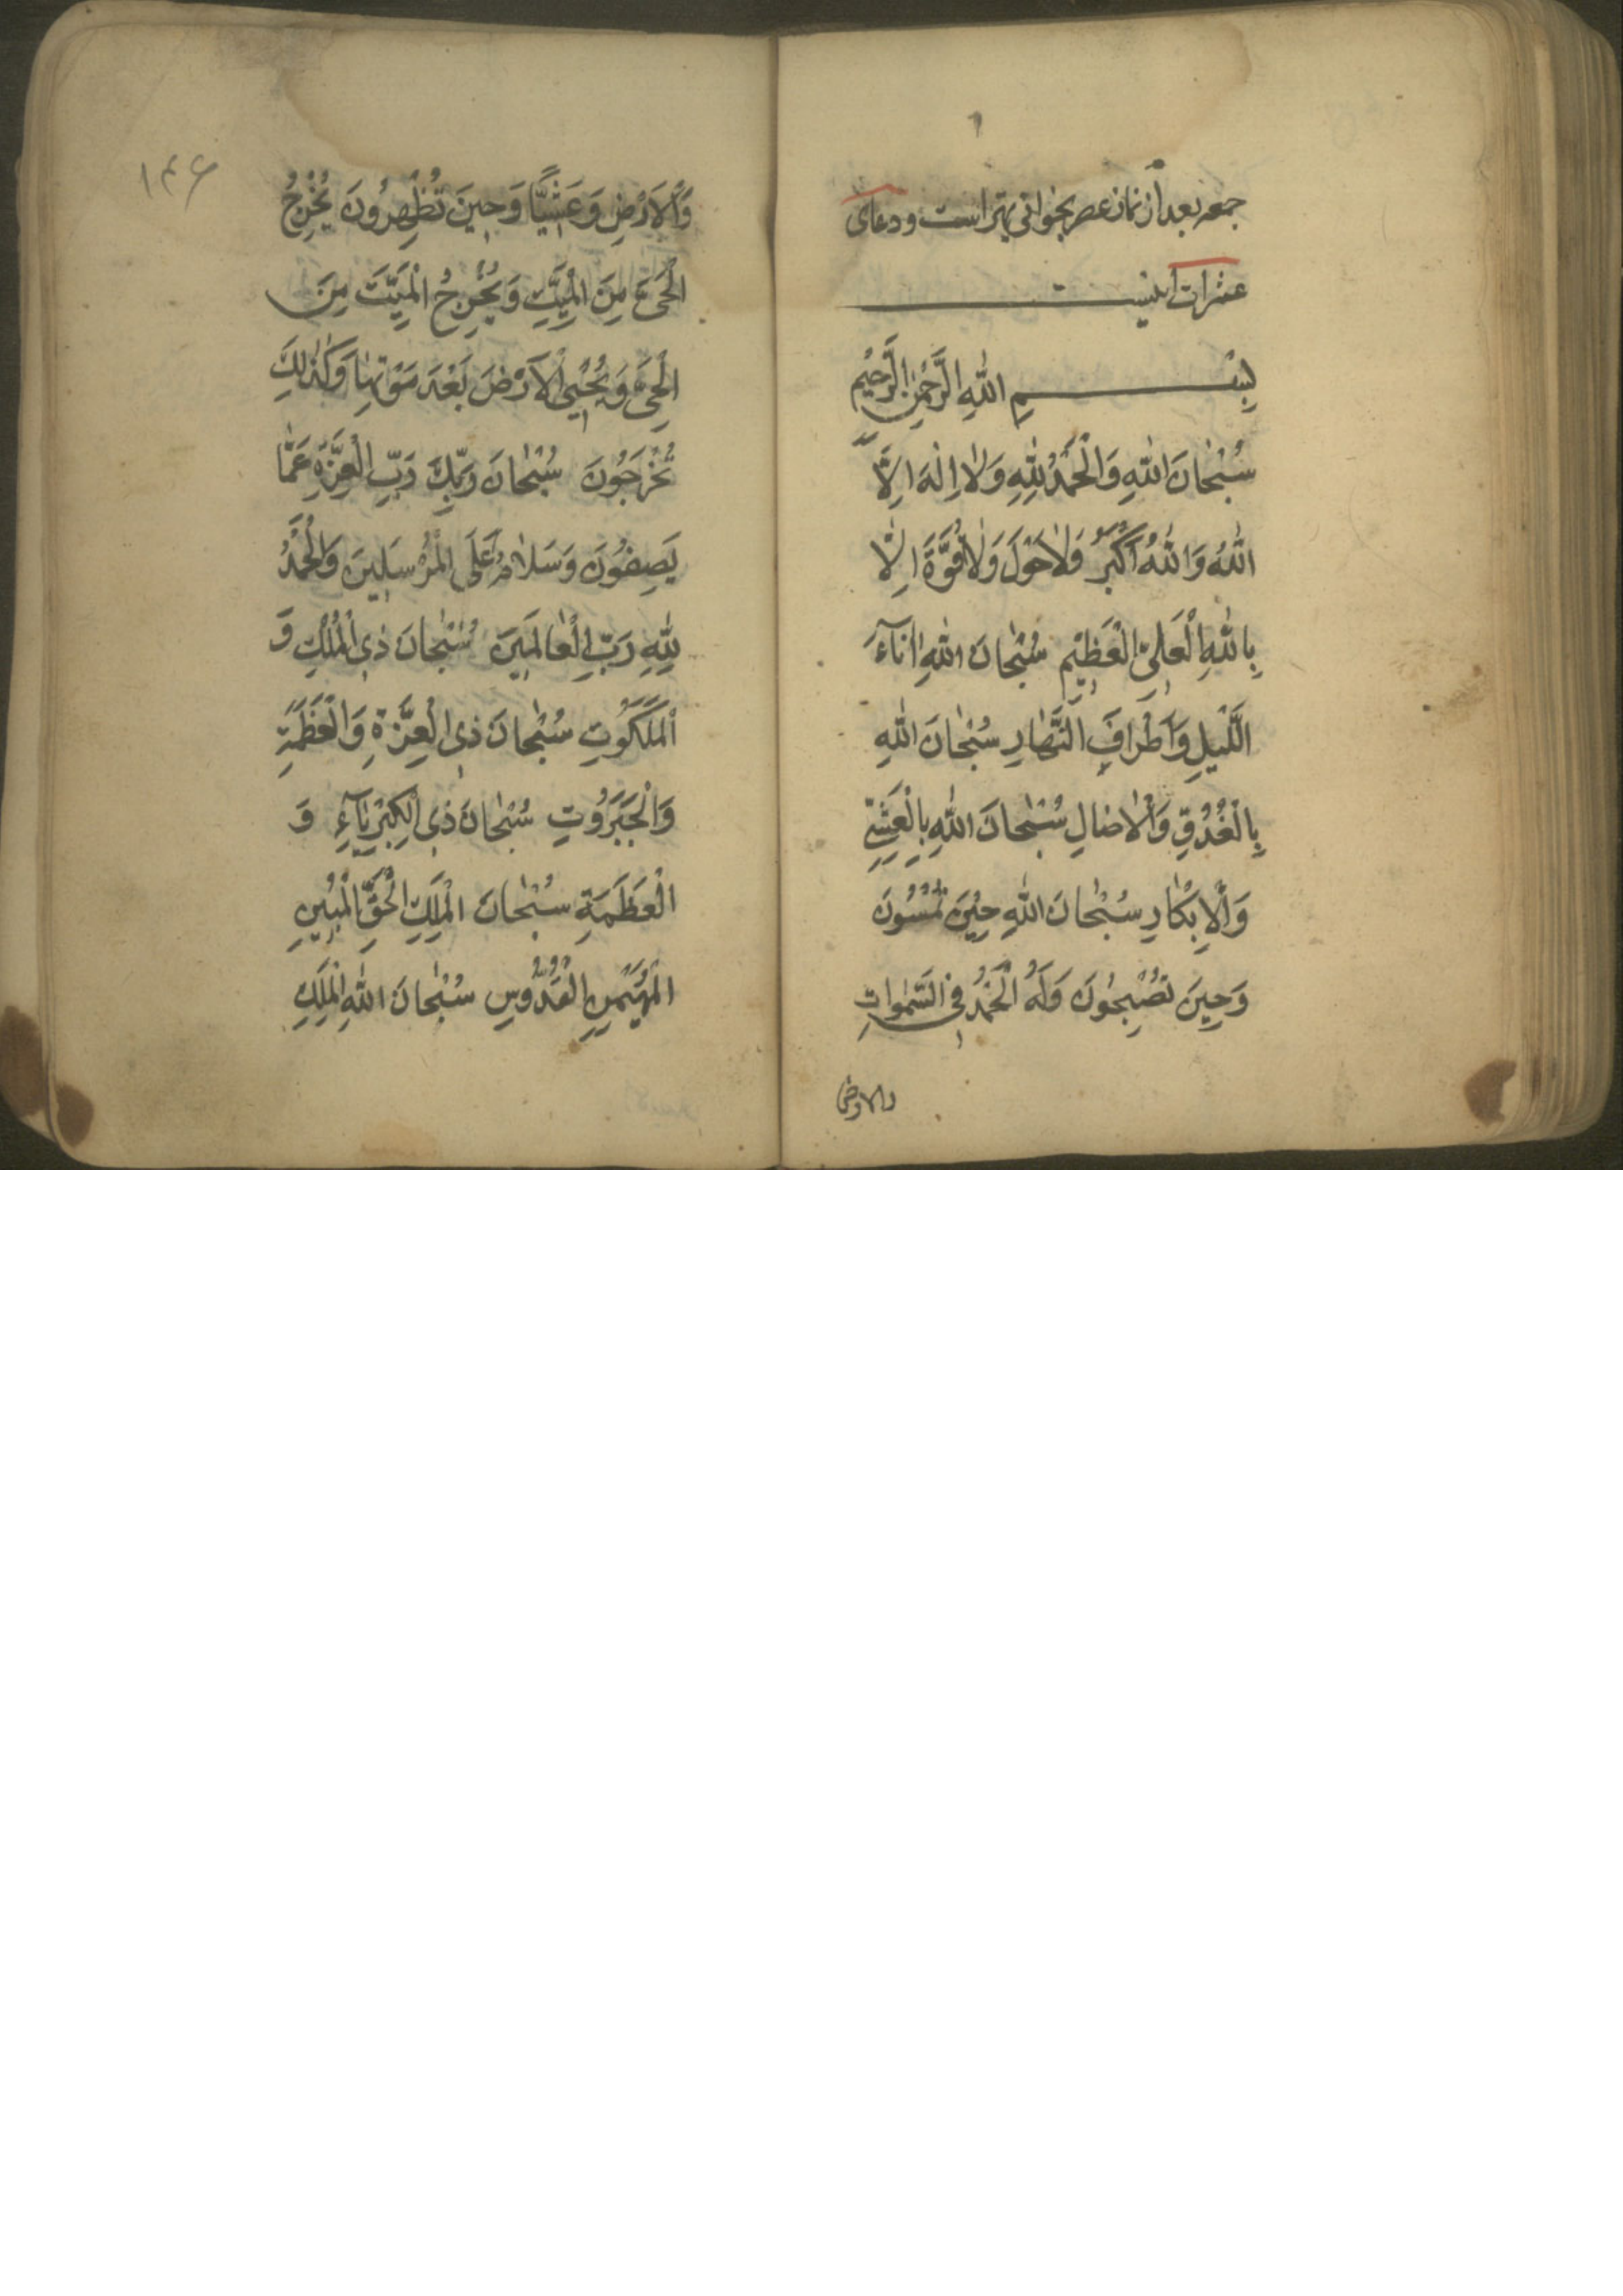 جمعه بعد از نماز عصر بخوانی بهتر است و دعای
عشرات اینست
بِسْمِ اللّٰهِ الرَّحْمٰنِ الرَّحِيْمِ
سُبْحٰانَ اللّٰهِ وَالْحَمْدُ لِلّٰهِ وَلٰا اِلٰهَ اِلَّا
اللّٰهُ وَاللّٰهُ اَكْبَرُ وَلٰا حَوْلَ وَلٰا قُوَّةَ اِلّٰا
بِاللّٰهِ الْعَلِىِّ الْعَظِيْمِ سُبْحٰانَ اللّٰهِ اٰنَآءَ
الَّلَيْلِ وَاَطْرٰافَ النَّهٰارِ سُبْحٰانَ اللّٰهِ
بِالْغُدُوِّ وَالْاٰصٰالِ سُبْحٰانَ اللّٰهِ بِالْعَشِىِّ
وَالْاِبْكٰارِ سُبْحٰانَ اللّٰهِ حِيْنَ تُمْسُوْنَ
وَحِيْنَ تُصْبِحُوْنَ وَلَهُ الْحَمْدُ فِى السَّمٰوٰاتِ
والارض
١٤٦
وَالْاَرْضِ وَعَشِيًّا وَحِيْنَ تُظْهِرُوْنَ يُخْرِجُ
الْحَىَّ مِنَ الْمَيِّتِ وَيُخْرِجُ الْمَيِّتَ مِنَ
الْحَىِّ وَيُحْيِى الْاَرْضَ بَعْدَ مَوْتِهٰا وَكَذٰلِكَ
تُخْرَجُوْنَ سُبْحٰانَ رَبِّكَ رَبِّ الْعِزَّةِ عَمّٰا
يَصِفُوْنَ وَسَلٰامٌ عَلَى الْمُرْسَلِيْنَ وَالْحَمْدُ
لِلّٰهِ رَبِّ الْعٰالَمِيْنَ سُبْحٰانَ ذِى الْمُلْكِ وَ
الْمَلَكُوْتِ سُبْحٰانَ ذِى الْعِزَّةِ وَالْعَظَمَةِ
وَالْجَبَرُوْتِ سُبْحٰانَ ذِى الْكِبْرِيٰآءِ وَ
الْعَظَمَةِ سُبْحٰانَ الْمَلِكِ الْحَقِّ الْمُبِيْنِ
الْمُهَيْمِنِ الْقُدُّوْسِ سُبْحٰانَ اللّٰهِ الْمَلِكِ